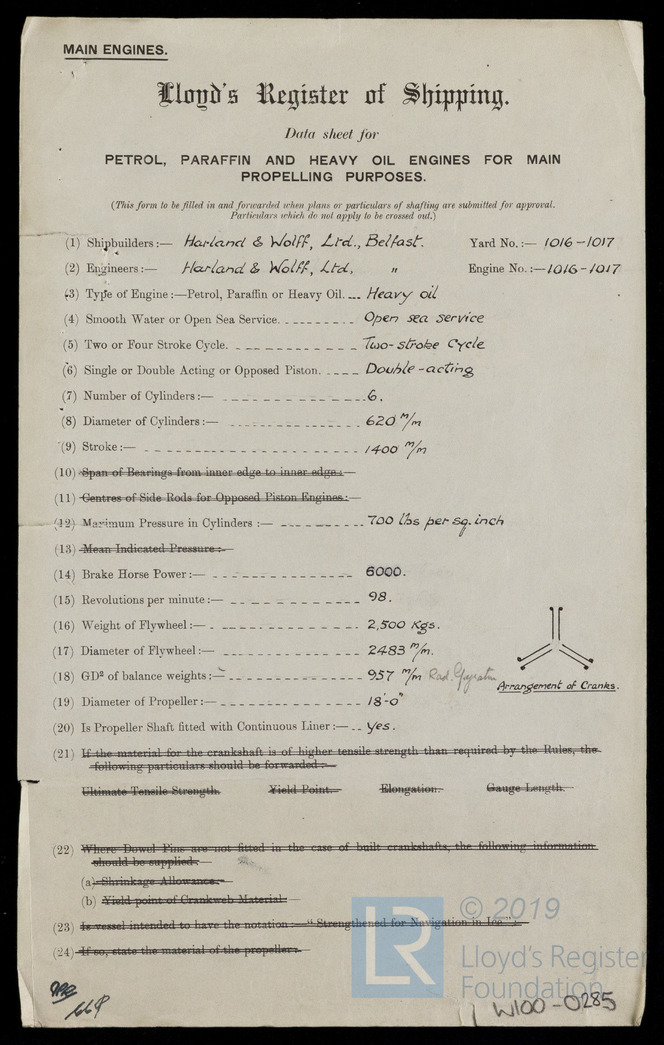 MAIN ENGINES.
Lloyd's Register of Shipping.
Data sheet for
PETROL, PARAFFIN AND HEAVY OIL ENGINES FOR MAIN
PROPELLING PURPOSES.
(This form to be filled in and forwarded when plans or particulars of shafting are submitted for approval.
Particulars which do not apply to be crossed out.)
(1) Shipbuilders:— Harland & Wolff, Ltd., Belfast. Yard No.:— 1016-1017
(2) Engineers:— Harland & Wolff, Ltd, " Engine No.:—1016-1017
(3) Type of Engine:—Petrol, Paraffin or Heavy Oil. Heavy oil
(4) Smooth Water or Open Sea Service. Open sea service
(5) Two or Four Stroke Cycle. Two-stroke Cycle
(6) Single or Double Acting or Opposed Piston. Double-acting
(7) Number of Cylinders:— 6.
(8) Diameter of Cylinders:— 620 m/m
(9) Stroke:— 1400 m/m
(10) Span of Bearings from inner edge to inner edge:—
(11) Centres of Side Rods for Opposed Piston Engines:—
(12) Maximum Pressure in Cylinders:— 700 lbs per sq. inch
(13) Mean Indicated Pressure:—
(14) Brake Horse Power:— 6000.
(15) Revolutions per minute:— 98.
(16) Weight of Flywheel:— 2,500 Kgs.
(17) Diameter of Flywheel:— 2483 m/m.
(18) GD² of balance weights:— 957 m/m Rad. Gyration
Arrangement of Cranks.
(19) Diameter of Propeller:— 18'-0"
(20) Is Propeller Shaft fitted with Continuous Liner:— Yes.
(21) If the material for the crankshaft is of higher tensile strength than required by the Rules, the
following particulars should be forwarded:—
Ultimate Tensile Strength. Yield Point. Elongation. Gauge Length.
(22) Where Dowel Pins are not fitted in the case of built crankshafts, the following information
should be supplied:—
(a) Shrinkage Allowance.
(b) Yield point of Crankweb Material
(23) Is vessel intended to have the notation:—"Strengthened for Navigation in Ice".
(24) If so, state the material of the propeller:—
LR
© 2019
Lloyd's Register
Foundation
W100-0285